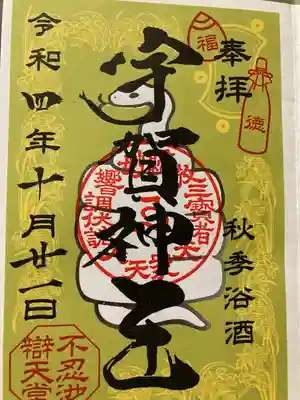 奉拝
福
徳
宇賀神王
秋季浴酒
令和四年十月廿一日
不忍池
辯天堂